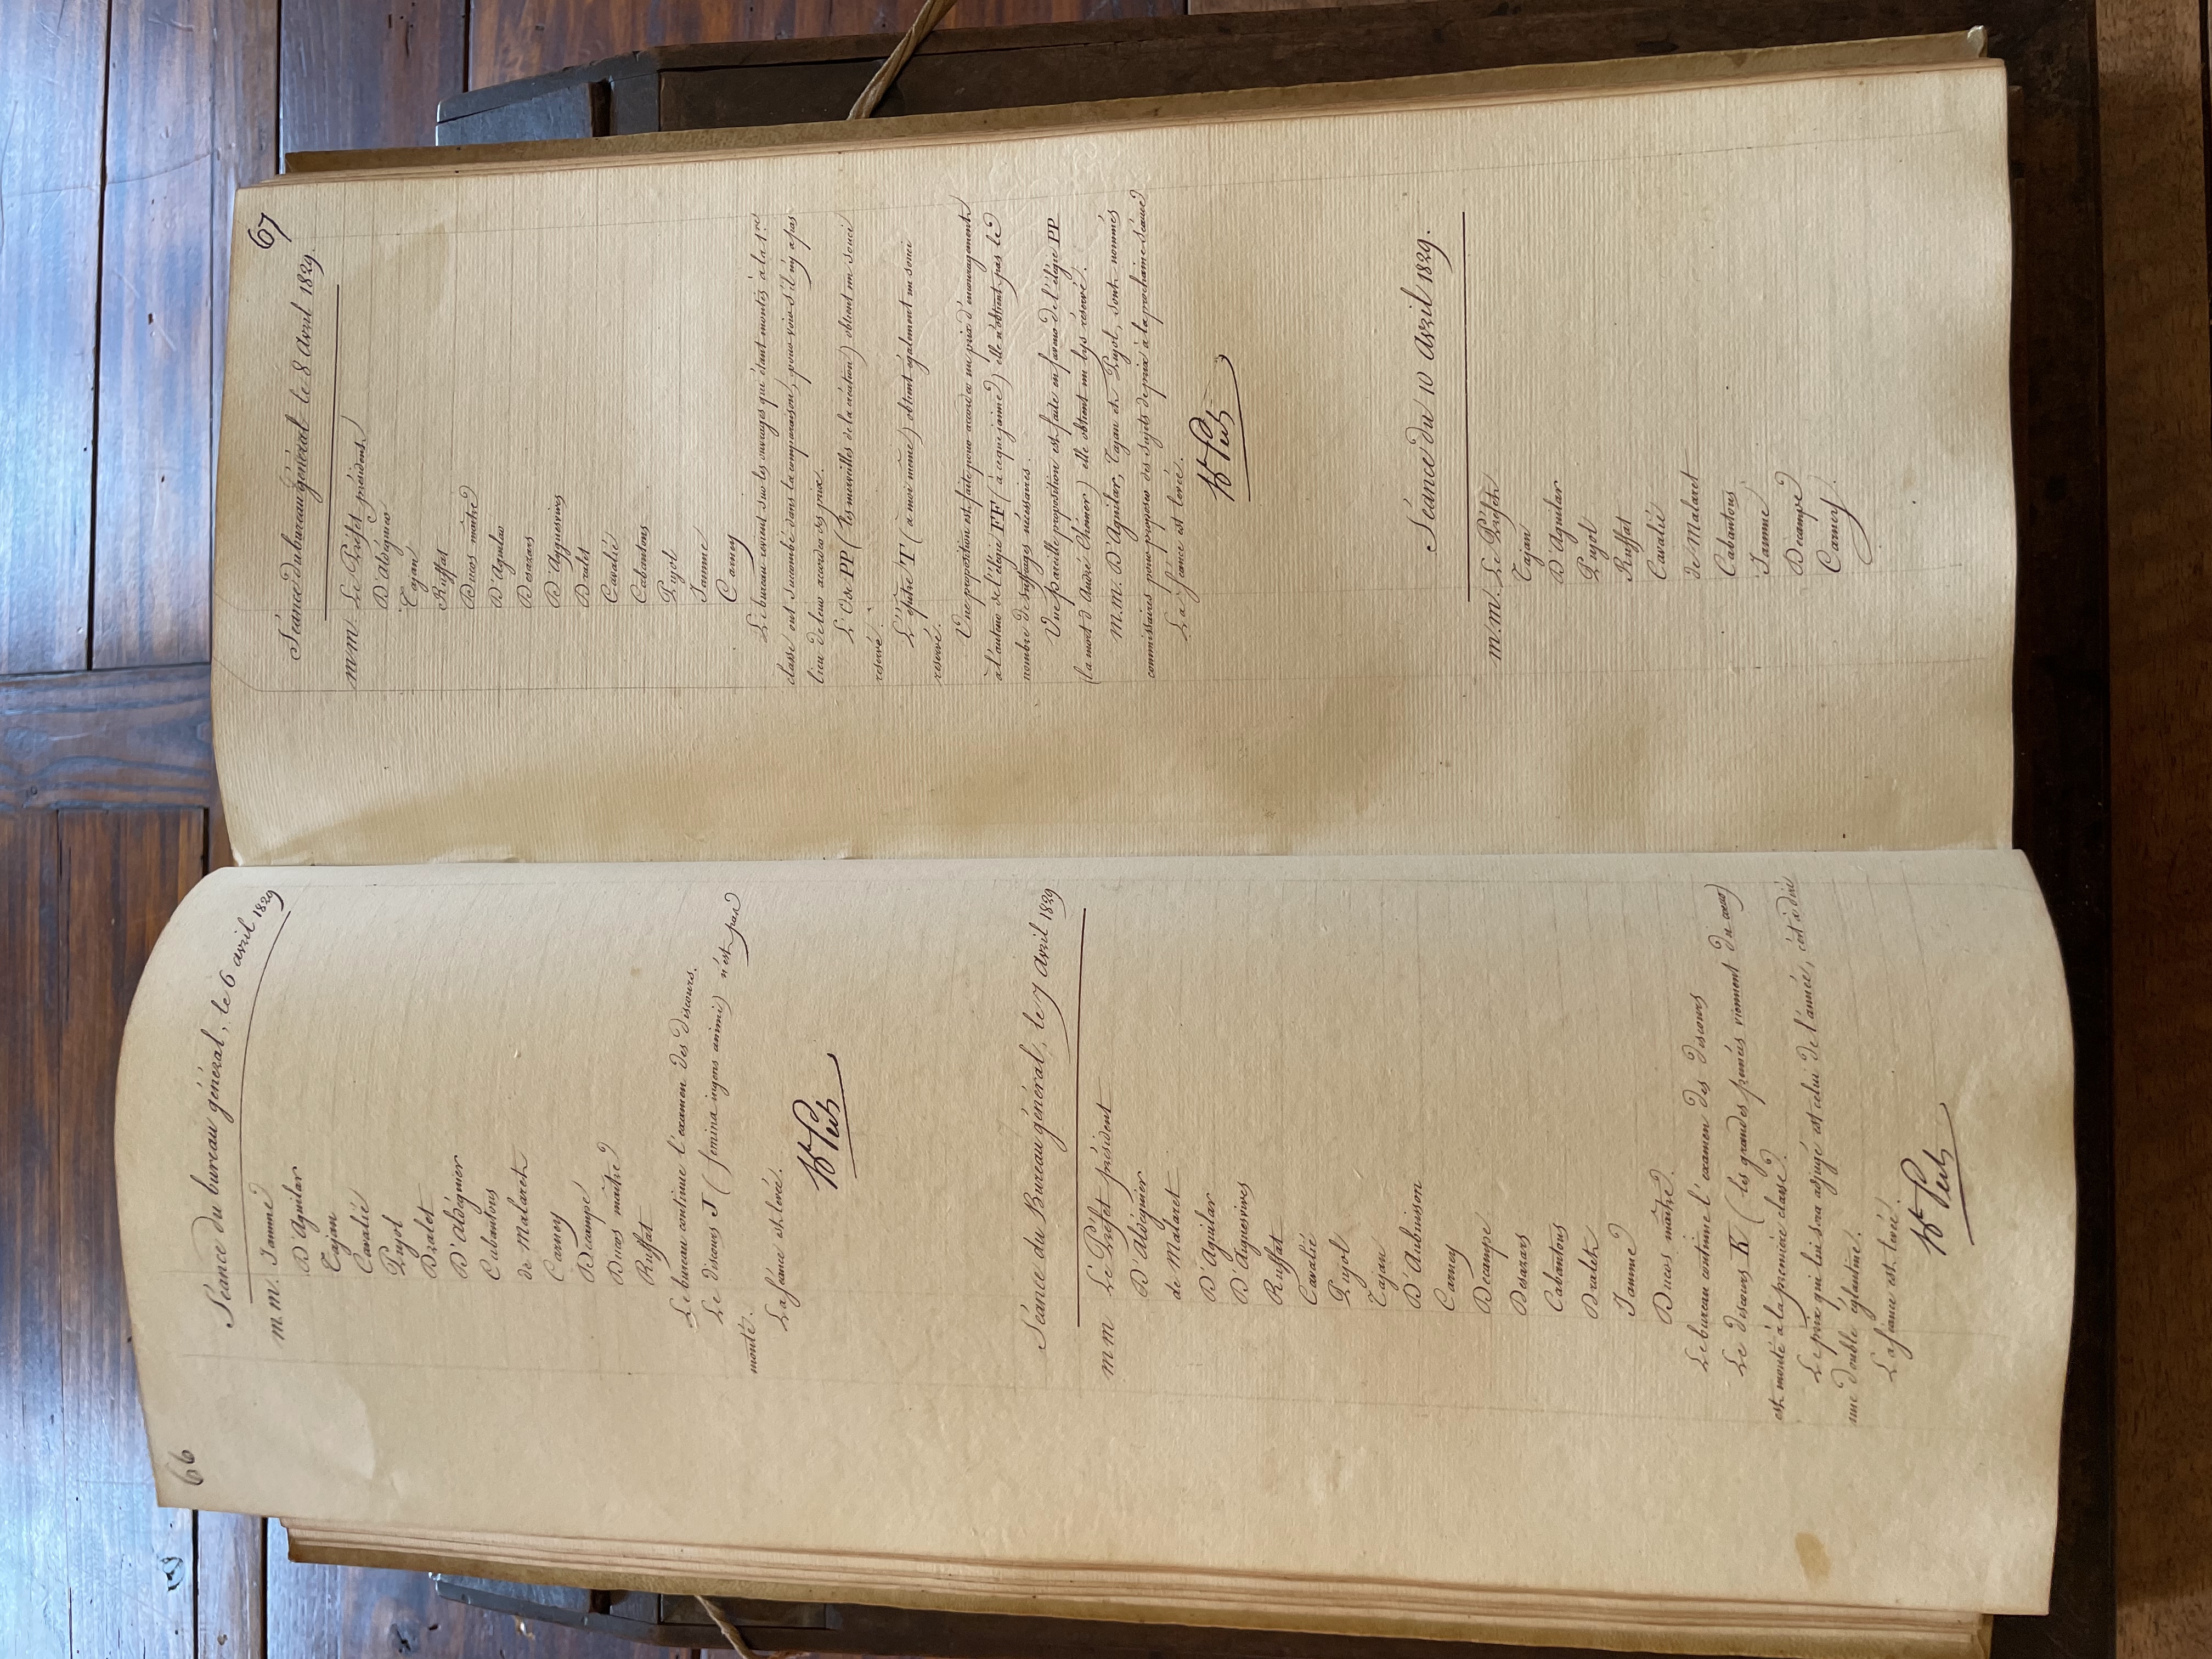 66
Séance du bureau général, le 6 avril 1829
m. m. Jamme
D'Aguilar
Tajan
Cavalié
Pujol
Dralet
D'Aldéguier
Cabantous
de Malaret
Carney
Decampe
Ducos maître
Ruffat
Le bureau continue l'examen des discours.
Le discours J (femina ingens animi) n'est pas
monté.
La séance est levée.
Séance du Bureau général, le 7 avril 1829
m m Le Préfet président
D'Aldéguier
de Malaret
D'Aguilar
D'Aiguesvives
Ruffat
Cavalié
Pujol
Tajan
D'Aubuisson
Carney
Decampe
Desazars
Cabantous
Dralet
Jamme
Ducos maître.
Le bureau continue l'examen des discours
Le discours K (les grandes pensées viennent du cœur)
est monté à la première classe.
Le prix qui lui sera adjugé est celui de l'année, c'est à dire
une double églantine.
La séance est levée.
67
Séance du bureau général le 8 avril 1829.
m.m. Le Préfet président
D'aldéguier
Tajan
Ruffat
Ducos maître
D'Aguilar
Desazars
D'Ayguesvives
Dralet
Cavalié
Cabantous
Pujol
Jamme
Carney
Le bureau revient sur les ouvrages qui étant montés à la 1re
classe ont succombé dans la comparaison, pour voir s'il n'y a pas
lieu de leur accorder des prix.
L'Ode PP (les merveilles de la création) obtient un souci
réservé.
L'épitre T (à moi même) obtient également un souci
réservé.
Une proposition est faite pour accorder un prix d'encouragement
à l'auteur de l'élégie FF (à ce que j'aime) elle n'obtient pas le
nombre de suffrages nécessaires.
Une pareille proposition est faite en faveur de l'élégie PP
(la mort d'André Chénier) elle obtient un lys réservé.
M.m. D'Aguilar, Tajan et Pujol, sont nommés
commissaires pour proposer des sujets de prix à la prochaine séance
La séance est levée.
Séance du 10 avril 1829.
m.m. Le Préfet
Tajan
D'Aguilar
Pujol
Ruffat
Cavalié
de Malaret
Cabantous
Jamme
Decampe
Carney